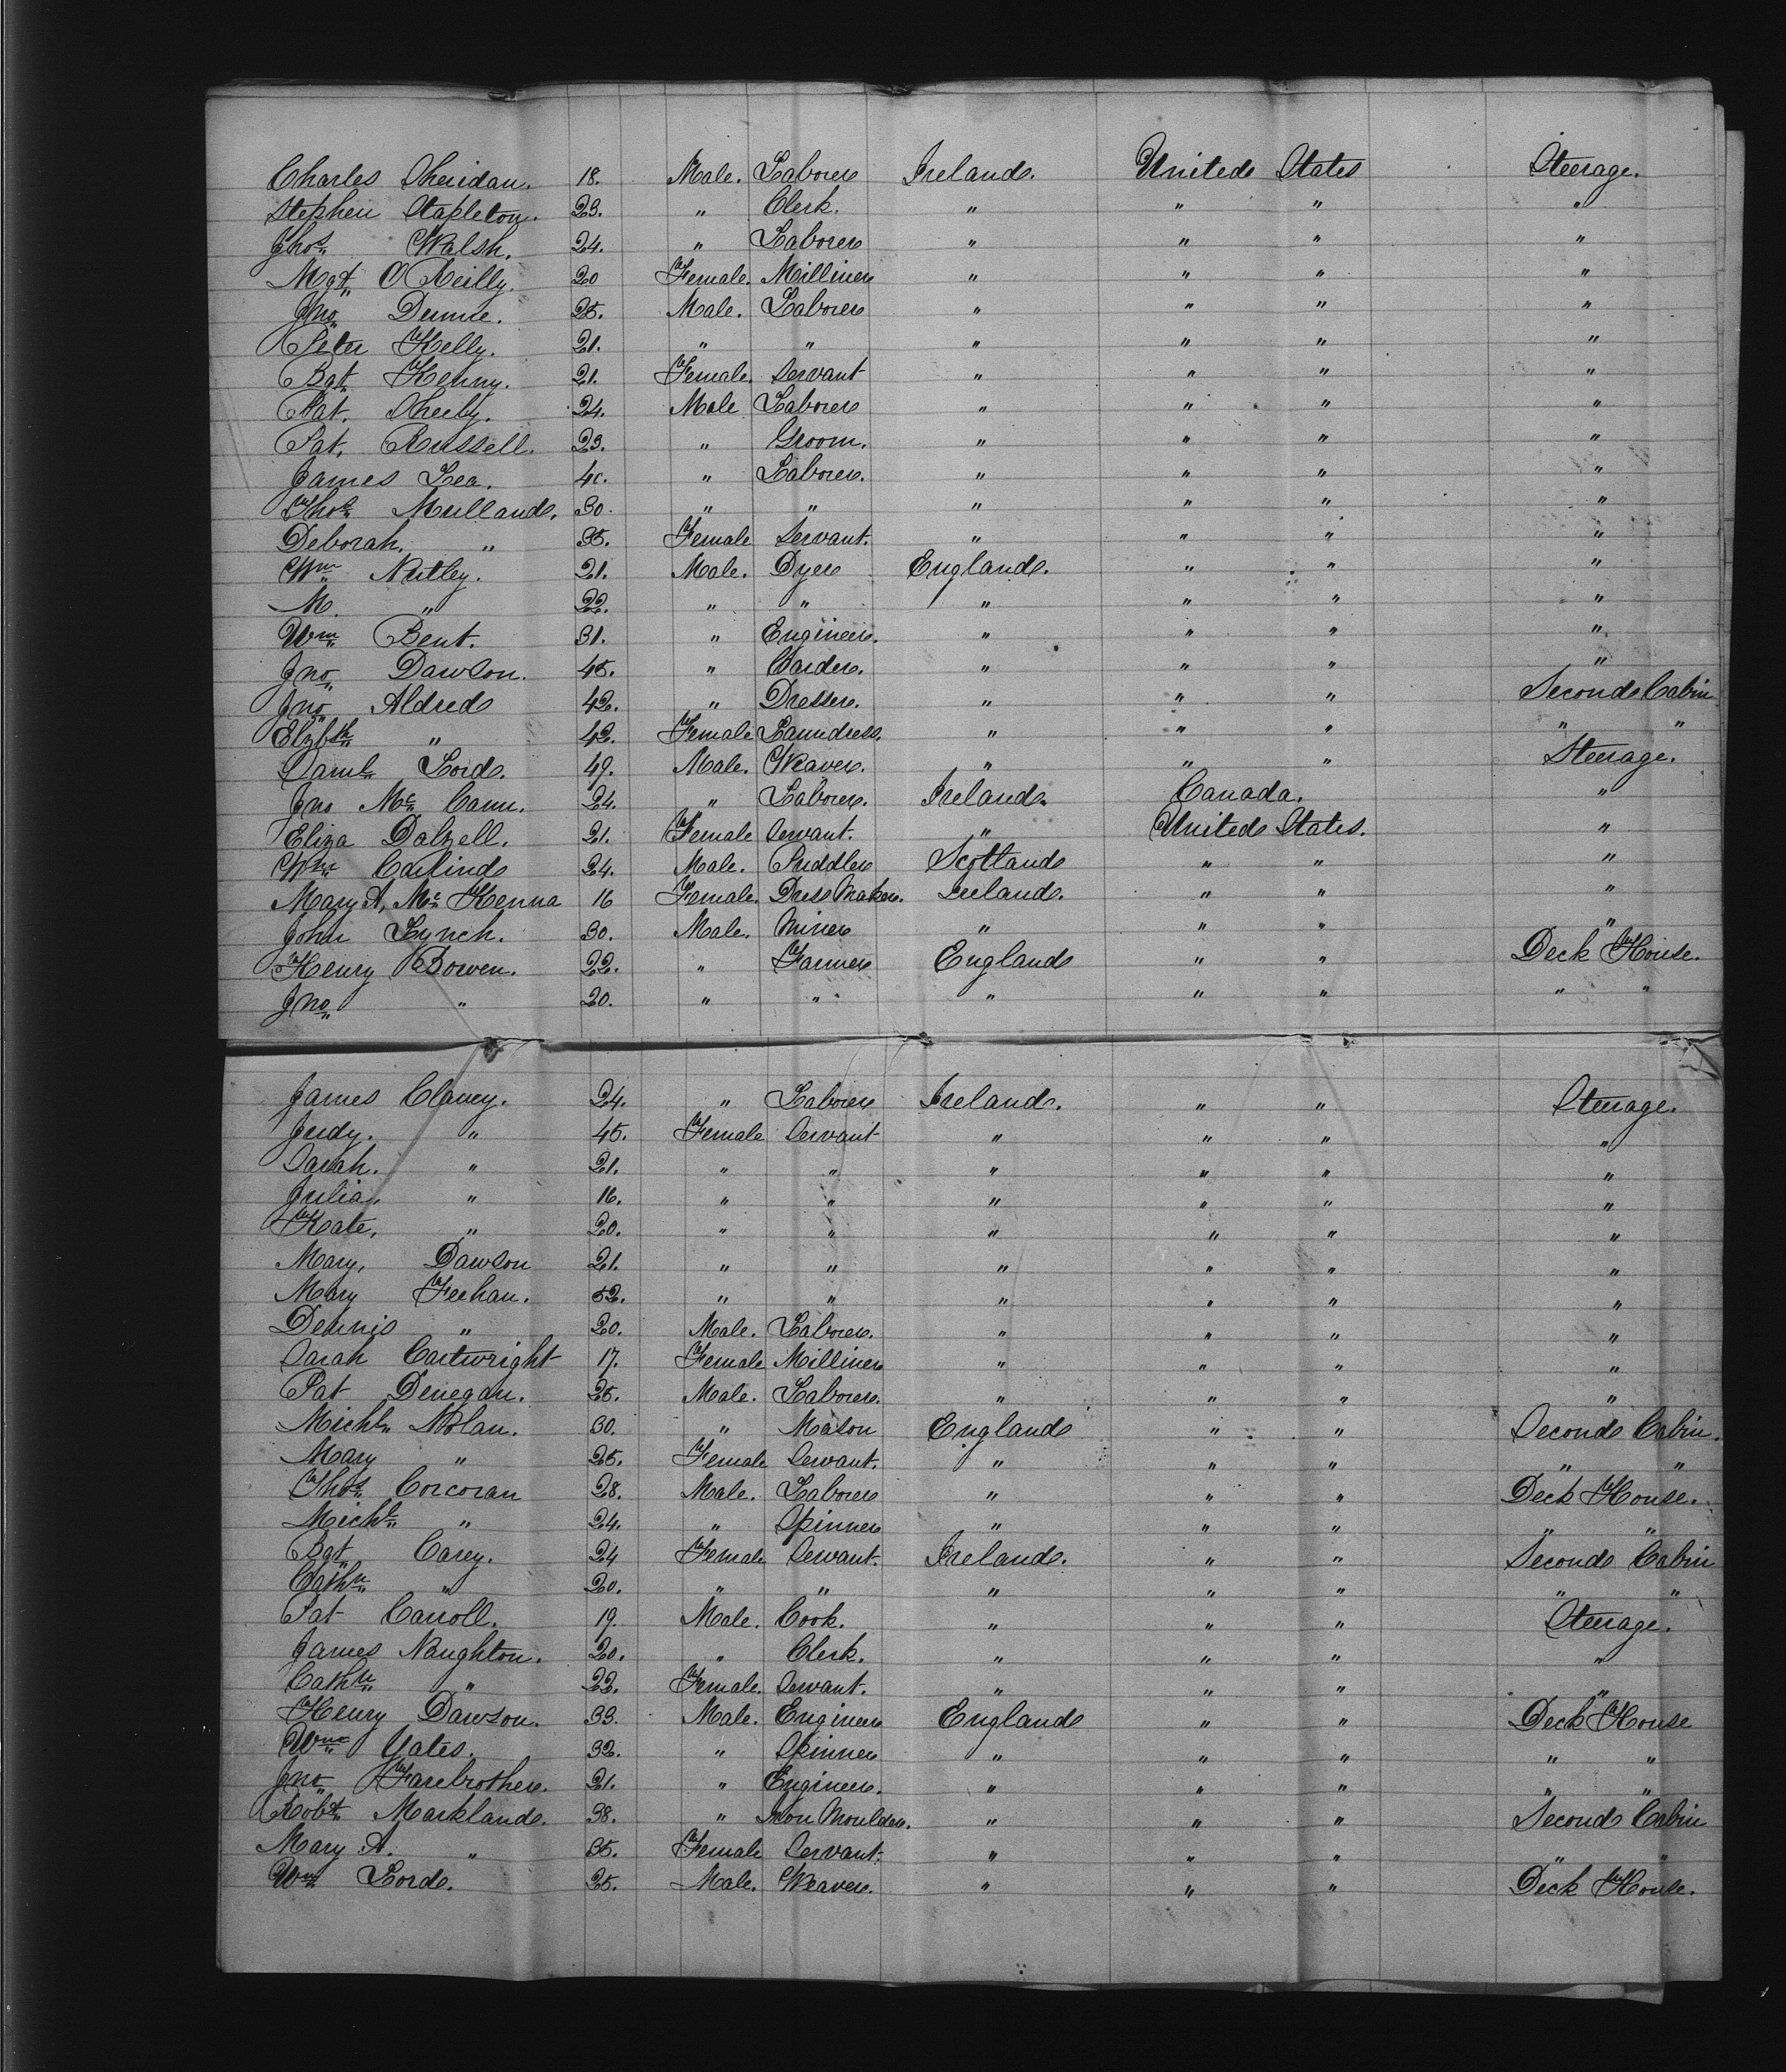 Charles Sheridan. 18. Male. Laborer Ireland. United States Steerage.
Stephen Stapleton. 23. " Clerk. " " " "
Thos. Walsh. 24. " Laborer " " " "
Mgt. O Reilly. 20 Female. Milliner " " " "
Jno. Dunne. 25. Male. Laborer " " " "
Peter Kelly. 21. " " " " " "
Bgt. Kenny. 21. Female. Servant " " " "
Pat. Sheehy. 24. Male Laborer " " " "
Pat. Russell. 23. " Groom. " " " "
James Lea. 40. " Laborer. " " " "
Thos. Mulland. 30. " " " " " "
Deborah. " 35. Female Servant. " " " "
Wm. Nutley. 21. Male. Dyer England. " " "
M. " 22. " " " " " "
Wm. Bent. 31. " Engineer. " " " "
Jno. Dawson. 45. " Carder. " " " "
Jno. Aldred 42. " Dresser. " " " Second Cabin
Elzbth " 42. Female Laundress. " " " " "
Saml. Lord. 49. Male. Weaver. " " " Steerage.
Jno Mc. Cann. 24. " Laborer. Ireland. Canada. "
Eliza Dalzell. 21. Female Servant. " United States. "
Wm. Carlind 24. Male. Puddler Scotland " " "
Mary A, Mc. Kenna 16 Female. Dress Maker. Ireland. " " "
John Lynch. 30. Male. Miner " " " "
Henry Bowen. 22. " Farmer England " " Deck House.
Jno. " 20. " " " " " " "
James Clancy. 24. " Laborer Ireland. " " Steerage.
Judy. " 45. Female Servant " " " "
Sarah. " 21. " " " " " "
Julia, " 16. " " " " " "
Kate, " 20. " " " " " "
Mary, Dawson 21. " " " " " "
Mary Feehan. 52. " " " " " "
Dennis " 20. Male. Laborer. " " " "
Sarah Cartwright 17. Female Milliner " " " "
Pat Denegan. 25. Male. Laborer. " " " "
Michl. Nolan. 30. " Mason England " " Second Cabin.
Mary " 25. Female Servant. " " " " "
Thos. Corcoran 28. Male. Laborer " " " Deck House.
Michl. " 24. " Spinner " " " " "
Bgt. Carey. 24 Female Servant. Ireland. " " Second Cabin
Cathn. " 20. " " " " " " "
Pat Carroll. 19. Male. Cook. " " " Steerage.
James Naughton. 20. " Clerk. " " " "
Cathn. " 22. Female. Servant. " " " "
Henry Dawson. 33. Male. Engineer England " " Deck House
Wm. Yates. 32. " Spinner " " " " "
Jno. Farebrother. 21. " Engineer. " " " " "
Robt. Markland. 38. " Iron Moulder. " " " Second Cabin
Mary A. " 35. Female Servant. " " " " "
Wm. Lord. 25. Male. Weaver. " " " Deck House.